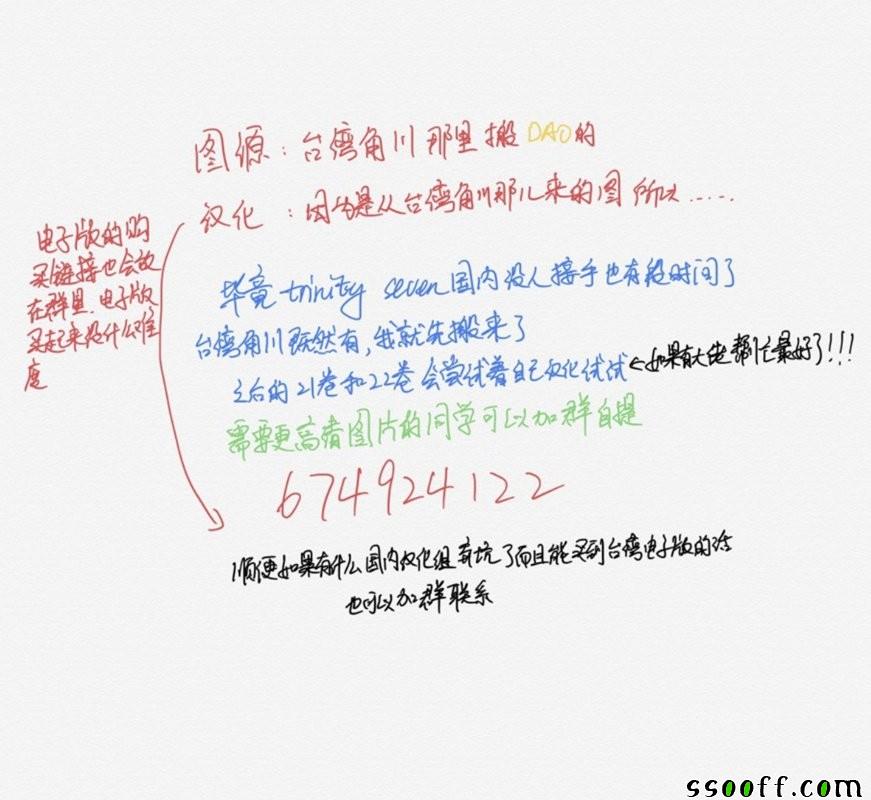 图源：台湾角川那里搬DAO的
汉化：因为是从台湾角川那儿来的图 所以……
电子版的购
买链接也会放
在群里.电子版
买起来没什么难
度
毕竟trinity seven国内没人接手也有段时间了
台湾角川既然有,我就先搬来了
之后的21卷和22卷会尝试着自己汉化试试←如果有大佬帮忙最好了!!!
需要更高清图片的同学可以加群自提
674924122
顺便如果有什么国内汉化组弃坑了而且能买到台湾电子版的话
也可以加群联系
ssooff.com